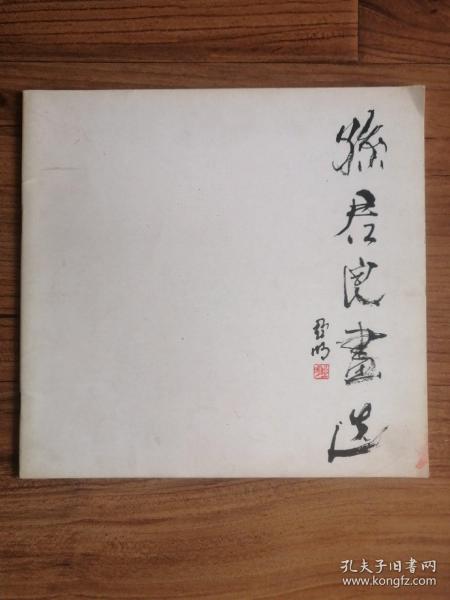 孫君良畫选
亚明
孔夫子旧书网
www.kongfz.com